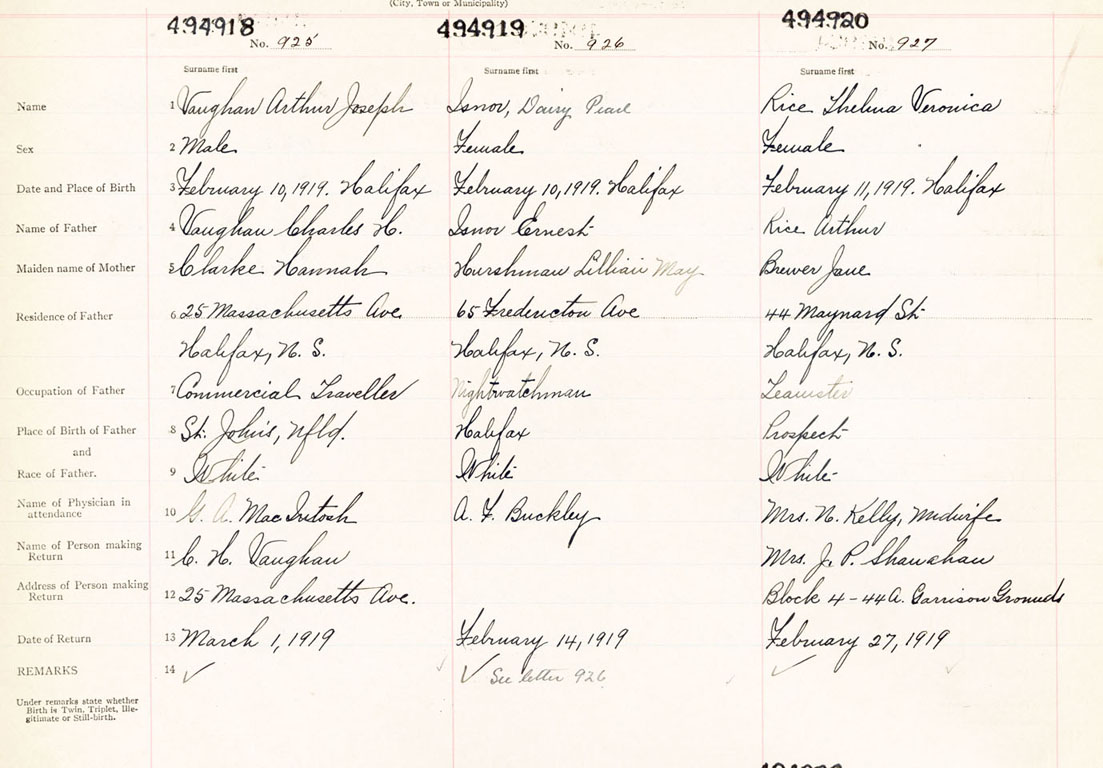 (City, Town or Municipality)
494918 494919 494920
No. 925 No. 926 No. 927
Surname first Surname first Surname first
Name 1 Vaughan Arthur Joseph Isnov, Daisy Pearl Rice Thelma Veronica
Sex 2 Male Female Female
Date and Place of Birth 3 February 10, 1919. Halifax February 10, 1919. Halifax February 11, 1919. Halifax
Name of Father 4 Vaughan Charles H. Isnov Ernest Rice Arthur
Maiden name of Mother 5 Clarke Hannah Hurshman Lillian May Brewer Jane
Residence of Father 6 25 Massachusetts Ave. 65 Fredericton Ave 44 Maynard St.
Halifax, N. S. Halifax, N. S. Halifax, N. S.
Occupation of Father 7 Commercial Traveller Nightwatchman Teamster
Place of Birth of Father 8 St. John's, Nfld. Halifax Prospect
and
Race of Father. 9 White White White
Name of Physician in attendance 10 G. A. MacIntosh A. F. Buckley Mrs. N. Kelly, Midwife
Name of Person making Return 11 C. H. Vaughan Mrs. J. P. Shanahan
Address of Person making Return 12 25 Massachusetts Ave. Block 4 - 44A. Garrison Grounds
Date of Return 13 March 1, 1919 February 14, 1919 February 27, 1919
REMARKS 14 ✓ ✓ See letter 926 ✓
Under remarks state whether
Birth is Twin, Triplet, Ille-
gitimate or Still-birth.